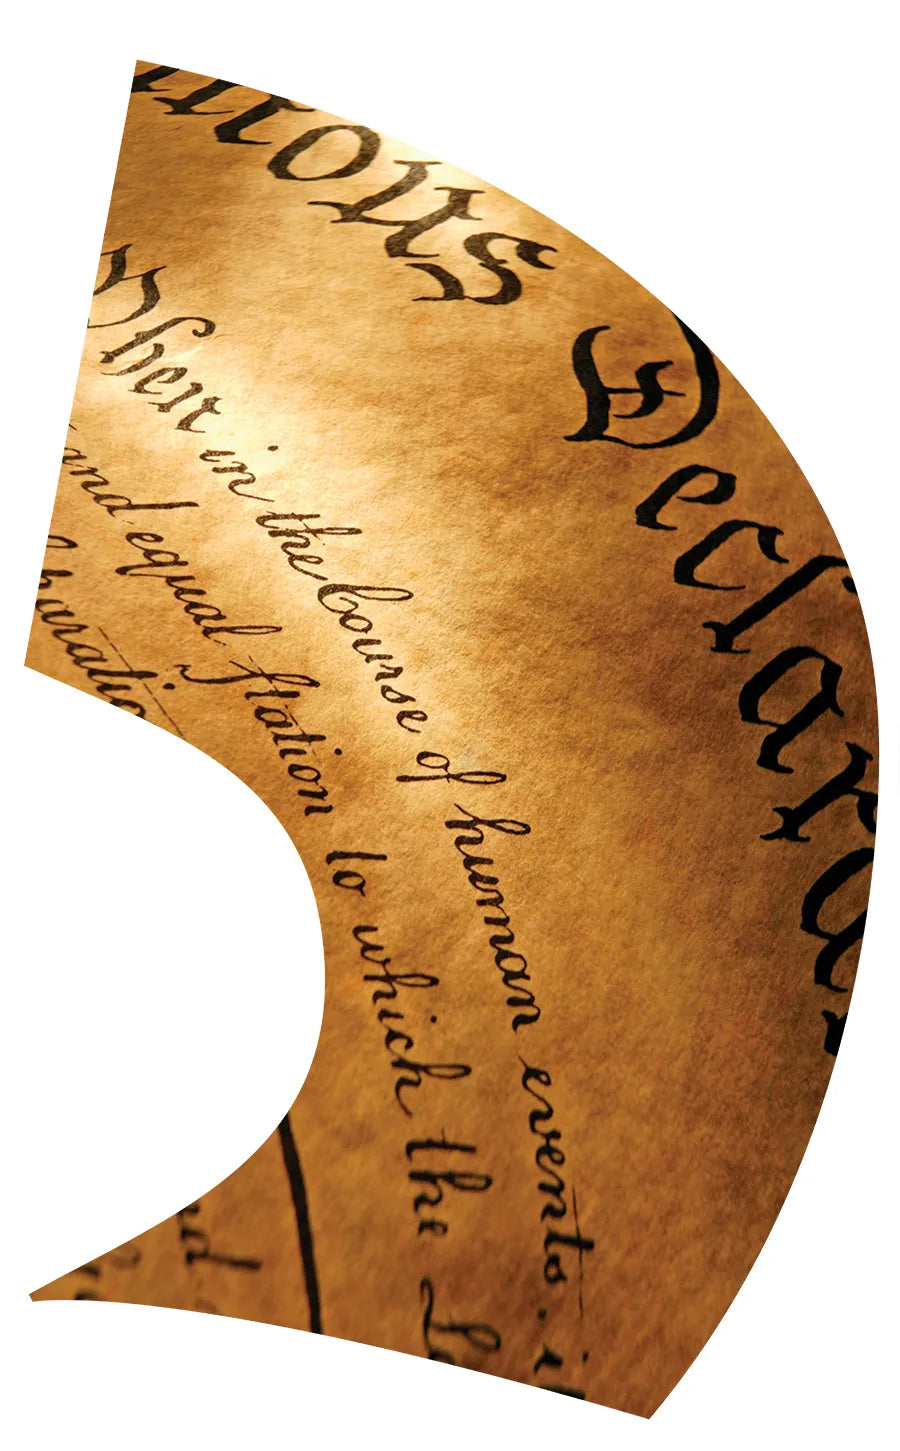 mous Declarat
When in the Course of human events. it
and equal station to which the La
paratio
nd